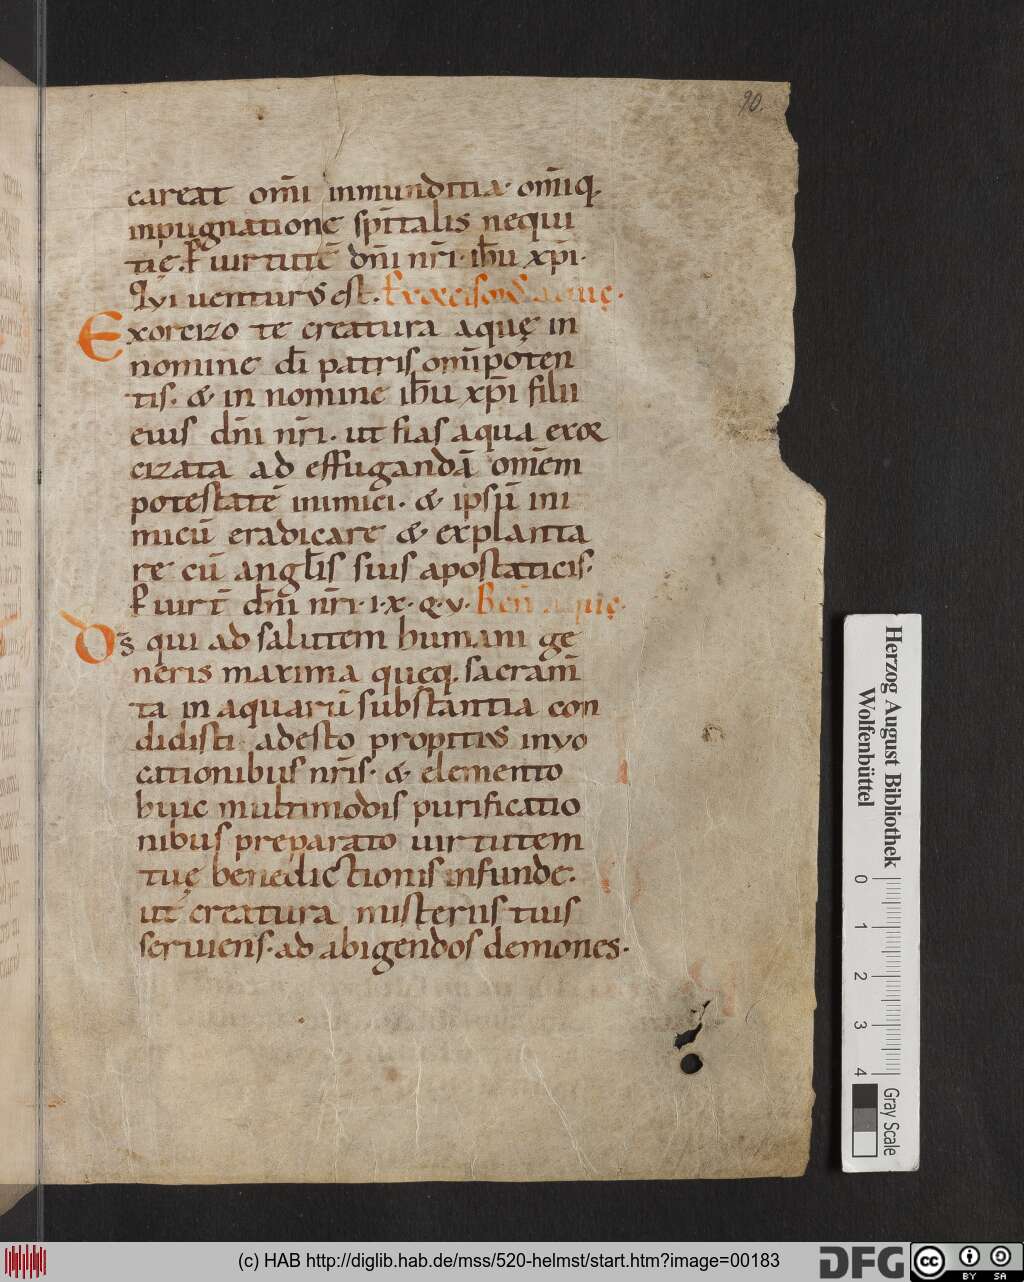 90.
careat om̄i inmunditia· om̄iq.
inpugnatione sp̄italis nequi
tię. P uirtutē dn̄i nr̄i· ih̄u xp̄i·
Qui uenturus est. Exorcismus aquę.
Exorcizo te creatura aquę in
nomine dī patris om̄ipoten
tis. & in nomine ih̄u xp̄i filii
eius dn̄i nr̄i. ut fias aqua exor
cizata ad effugandā om̄em
potestatē inimici. & ipsū ini
micū eradicare & explanta
re cū angl̄is suis apostaticis.
P uirt̄ dn̄i nr̄i·i·x·q·v· Ben̄ aquę.
Ds̄ qui ad salutem humani ge
neris maxima queq. sacram̄
ta in aquarū substantia con
didisti adesto propitius invo
cationibus nr̄is· & elemento
huic multimodis purificatio
nibus preparato uirtutem
tuę benedictionis infunde.
ut creatura misteriis tuis
seruiens· ad abigendos demones·
Herzog August Bibliothek
Wolfenbüttel
0 1 2 3 4
Gray Scale
(c) HAB http://diglib.hab.de/mss/520-helmst/start.htm?image=00183
DFG
cc BY SA